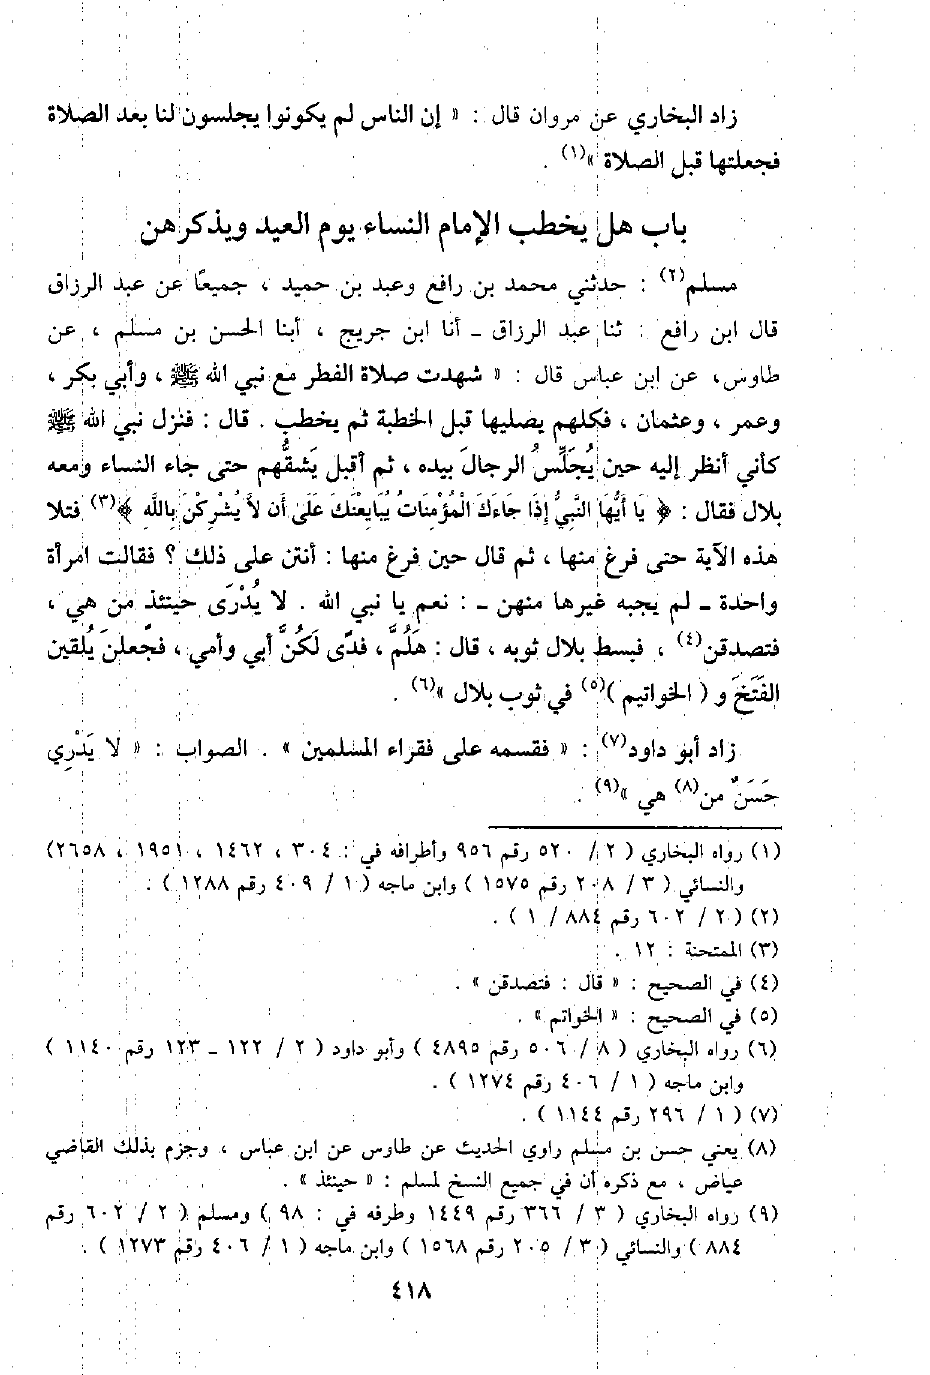 زاد البخاري عن مروان قال : « إن الناس لم يكونوا يجلسون لنا بعد الصلاة
فجعلتها قبل الصلاة »(١) .
باب هل يخطب الإمام النساء يوم العيد ويذكرهن
مسلم(٢) : حدثني محمد بن رافع وعبد بن حميد ، جميعًا عن عبد الرزاق
قال ابن رافع : ثنا عبد الرزاق ـ أنا ابن جريج ، أبنا الحسن بن مسلم ، عن
طاوس، عن ابن عباس قال : « شهدت صلاة الفطر مع نبي الله ﷺ ، وأبي بكر ،
وعمر ، وعثمان ، فكلهم يصليها قبل الخطبة ثم يخطب . قال : فنزل نبي الله ﷺ
كأني أنظر إليه حين يُجَلِّسُ الرجالَ بيده ، ثم أقبل يَشقُّهم حتى جاء النساء ومعه
بلال فقال : ﴿ يَا أَيُّهَا النَّبِيُّ إِذَا جَاءَكَ الْمُؤْمِنَاتُ يُبَايِعْنَكَ عَلَى أَن لاَّ يُشْرِكْنَ بِاللَّهِ ﴾(٣) فتلا
هذه الآية حتى فرغ منها ، ثم قال حين فرغ منها : أنتن على ذلك ؟ فقالت امرأة
واحدة ـ لم يجبه غيرها منهن ـ : نعم يا نبي الله . لا يُدْرَى حينئذ من هي ،
فتصدقن(٤) ، فبسط بلال ثوبه ، قال : هَلُمَّ ، فدًى لَكُنَّ أبي وأمي ، فجعلن يُلقين
الفَتَخَ و ( الخواتيم )(٥) في ثوب بلال »(٦) .
زاد أبو داود(٧) : « فقسمه على فقراء المسلمين » . الصواب : « لا يَدْرِي
حَسَنٌ من(٨) هي »(٩) .
(١) رواه البخاري ( ٢ / ٥٢٠ رقم ٩٥٦ وأطرافه في : ٣٠٤ ، ١٤٦٢ ، ١٩٥١ ، ٢٦٥٨)
والنسائي ( ٣ / ٢٠٨ رقم ١٥٧٥ ) وابن ماجه ( ١ / ٤٠٩ رقم ١٢٨٨ ) .
(٢) ( ٢ / ٦٠٢ رقم ٨٨٤ / ١ ) .
(٣) الممتحنة : ١٢ .
(٤) في الصحيح : « قال : فتصدقن » .
(٥) في الصحيح : « الخواتم » .
(٦) رواه البخاري ( ٨ / ٥٠٦ رقم ٤٨٩٥ ) وأبو داود ( ٢ / ١٢٢ ـ ١٢٣ رقم ١١٤٠ )
وابن ماجه ( ١ / ٤٠٦ رقم ١٢٧٤ ) .
(٧) ( ١ / ٢٩٦ رقم ١١٤٤ ) .
(٨) يعني حسن بن مسلم راوي الحديث عن طاوس عن ابن عباس ، وجزم بذلك القاضي
عياض ، مع ذكره أن في جميع النسخ لمسلم : « حينئذ » .
(٩) رواه البخاري ( ٣ / ٣٦٦ رقم ١٤٤٩ وطرفه في : ٩٨ ) ومسلم ( ٢ / ٦٠٢ رقم
٨٨٤ ) والنسائي ( ٣ / ٢٠٥ رقم ١٥٦٨ ) وابن ماجه ( ١ / ٤٠٦ رقم ١٢٧٣ ) .
٤١٨